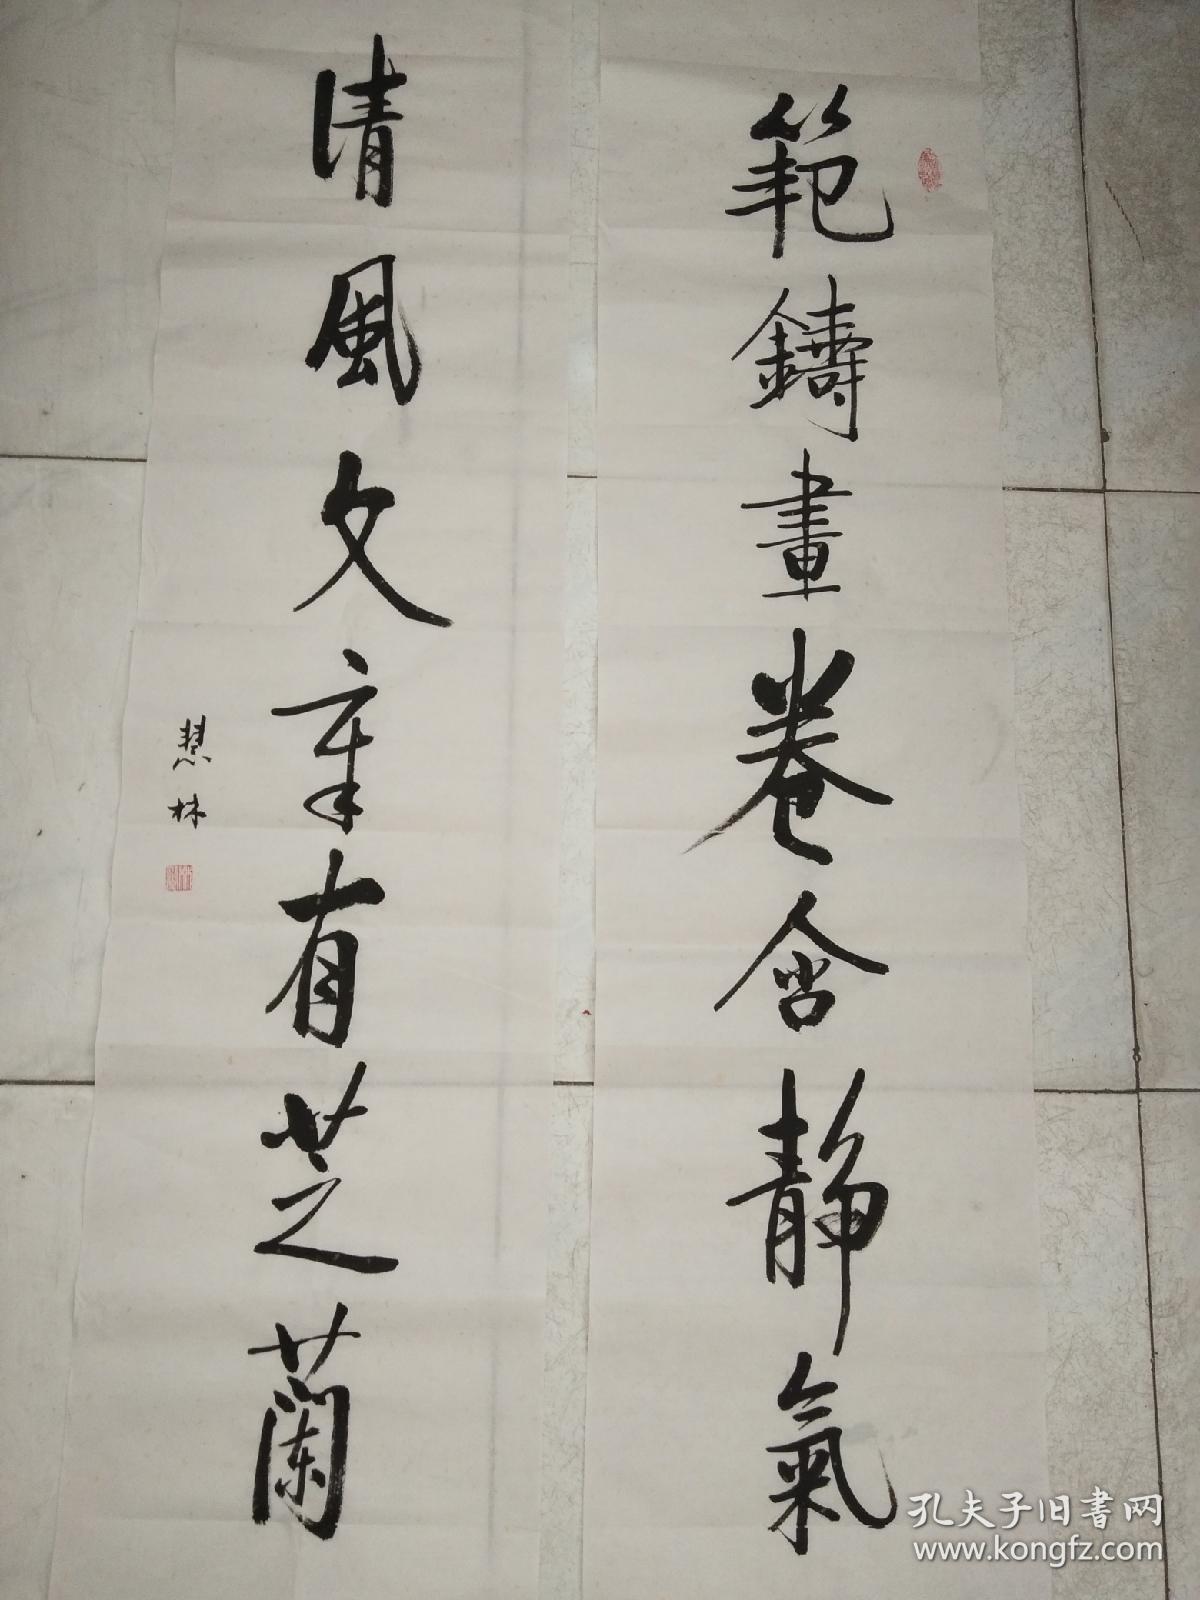 範鑄畫卷含靜氣
清風文章有芝蘭
慧林
孔夫子旧書网
www.kongfz.com